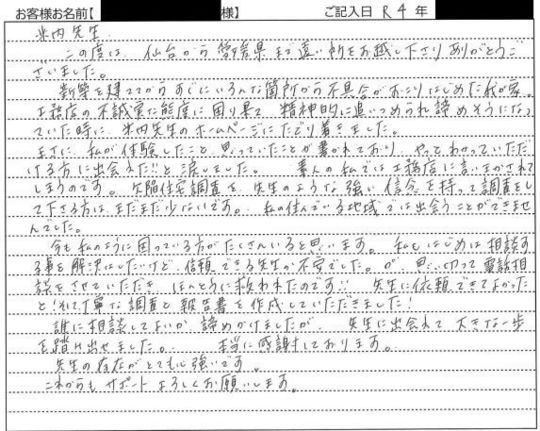 お客様お名前【　　　　様】　ご記入日 R4年
米内先生
この度は、仙台から愛媛県まで遠い所をお越し下さりありがとうご
ざいました。
新築を建ててからすぐにいろんな箇所から不具合がおこりはじめた我が家。
工務店の不誠実な態度に困り果て、精神的に追いつめられ諦めそうになっ
ていた時に、米内先生のホームページにたどり着きました。
まさに、私が体験したこと、思っていたことが書かれており、やっとわかっていただ
ける方に出会えた!!と涙しました。素人の私では工務店に言いまかされて
しまうのです。欠陥住宅調査を、先生のような強い信念を持って調査をし
て下さる方は、まだまだ少ないです。私の住んでいる地域では出会うことができませ
んでした。
今も私のように困っている方がたくさんいると思います。私もはじめは相談す
る事を解決はしたいけど、信頼できる先生か不安でした。が、思い切って電話相
談をさせていただき、ほんとうに救われたのです!! 先生に依頼できてよかった
と!そして丁寧な調査と報告書を作成していただきました!
誰に相談してよいか、諦めかけましたが、先生に出会えて大きな一歩
を踏み出せました。本当に感謝しております。
先生の存在がとても心強いです。
これからもサポートよろしくお願いします。